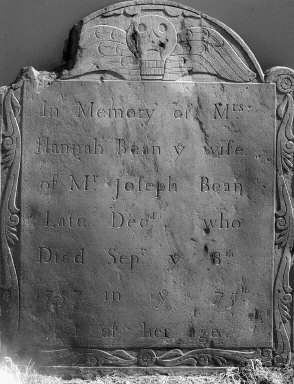 In Memory of Mrs
Hannah Bean ye wife
of Mr Joseph Bean
Late Decd who
Died Sepr ye 8th
1757 in ye 75th
of her age